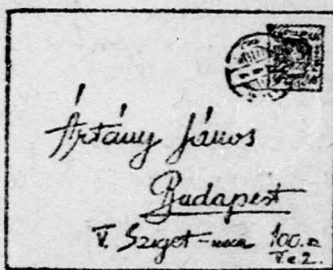 Ártány János
Budapest
V. Sziget-utca 100. sz.
V. e. 2.